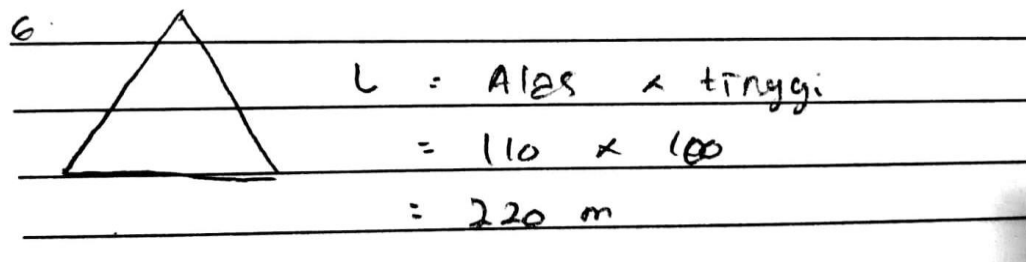 6.
L = Alas × tinggi
= 110 × 100
= 220 m